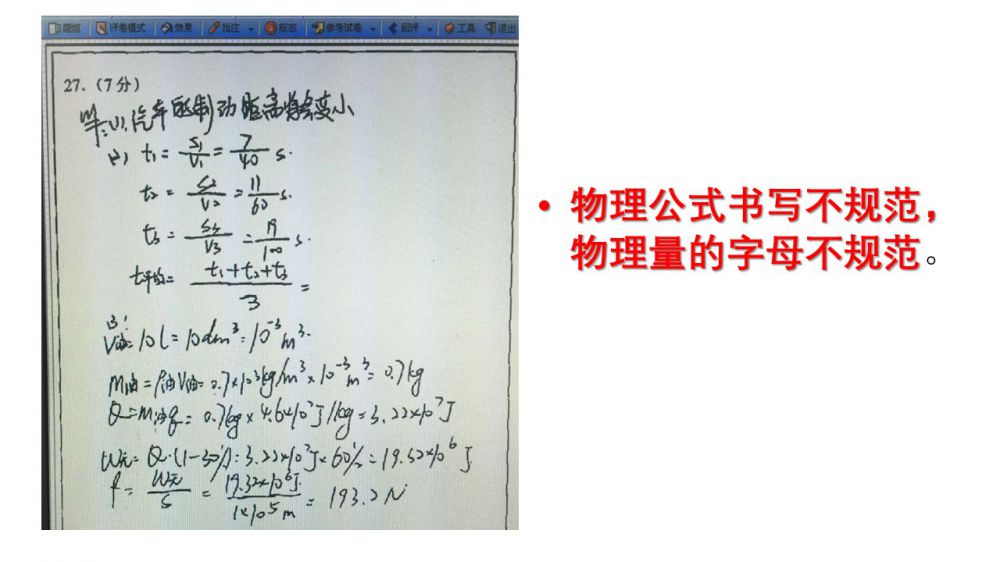 题组 评卷模式 效果 批注 标志 参考试卷 回评 工具 退出
27.（7分）
解:(1).汽车的制动距离将会变小
(2) t₁= S₁/V₁ = 7/40 s.
t₂= S₂/V₂ = 11/60 s.
t₃= S₃/V₃ = 19/100 s.
t平均= t₁+t₂+t₃/3 =
(3):
V油=10L=10dm³=10⁻³m³.
m油=ρ油V油=0.7×10³kg/m³×10⁻³m³=0.7kg
Q=m油q=0.7kg×4.6×10⁷J/kg=3.22×10⁷J
W元=Q·(1-30%)=3.22×10⁷J×60%=19.32×10⁶J
f= W元/S = 19.32×10⁶J/1×10⁵m =193.2N
• 物理公式书写不规范，
物理量的字母不规范。